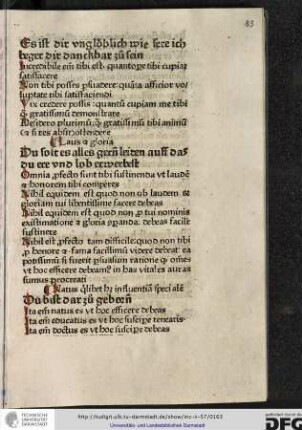 83
Es ist dir vnglöblich wie sere ich
beger dir danckbar zů sein
Incredibile em̄ tibi est. quantope tibi cupiā
satisfacere
Non tibi posses psuadere: quāta afficior vo⸗
luptate tibi satisfaciendi
Vix credere possis: quantū cupiam me tibi
gratissimū demonstrare
Desidero plurimū gratissimū tibi animū
si res abstpostendere
Laus & gloria
Du solt es alles gern leiden auff das
du ere vnd lob erwerbest
Omnia pfecto sunt tibi sustinenda vt laudē
& honorem tibi compares
Nihil equidem est quod non ob laudem &
gloriam tui libentissime facere debeas
Nihil equidem est quod non p tui nominis
existimatione & gloria debeas facile
sustinere
Nihil est pfecto tam difficile: quod non tibi
p honore & fama facillimū videre debeat
potissimū si fuerit psuasum ratione
vt hoc efficere debeam? in has vitales auras
sumus procreati
Natus quilibet
Du bist dar zů geborn
Ita em̄ natus es vt hoc efficere debeas
Ita em̄ educatus es vt hoc suscipe tenearis
Ita em̄ doctus es vt hoc suscipe debeas
TECHNISCHE UNIVERSITÄT DARMSTADT
http://tudigit.ulb.tu-darmstadt.de/show/inc-ii-57/0163
Universitäts- und Landesbibliothek Darmstadt
gefördert durch die
DFG